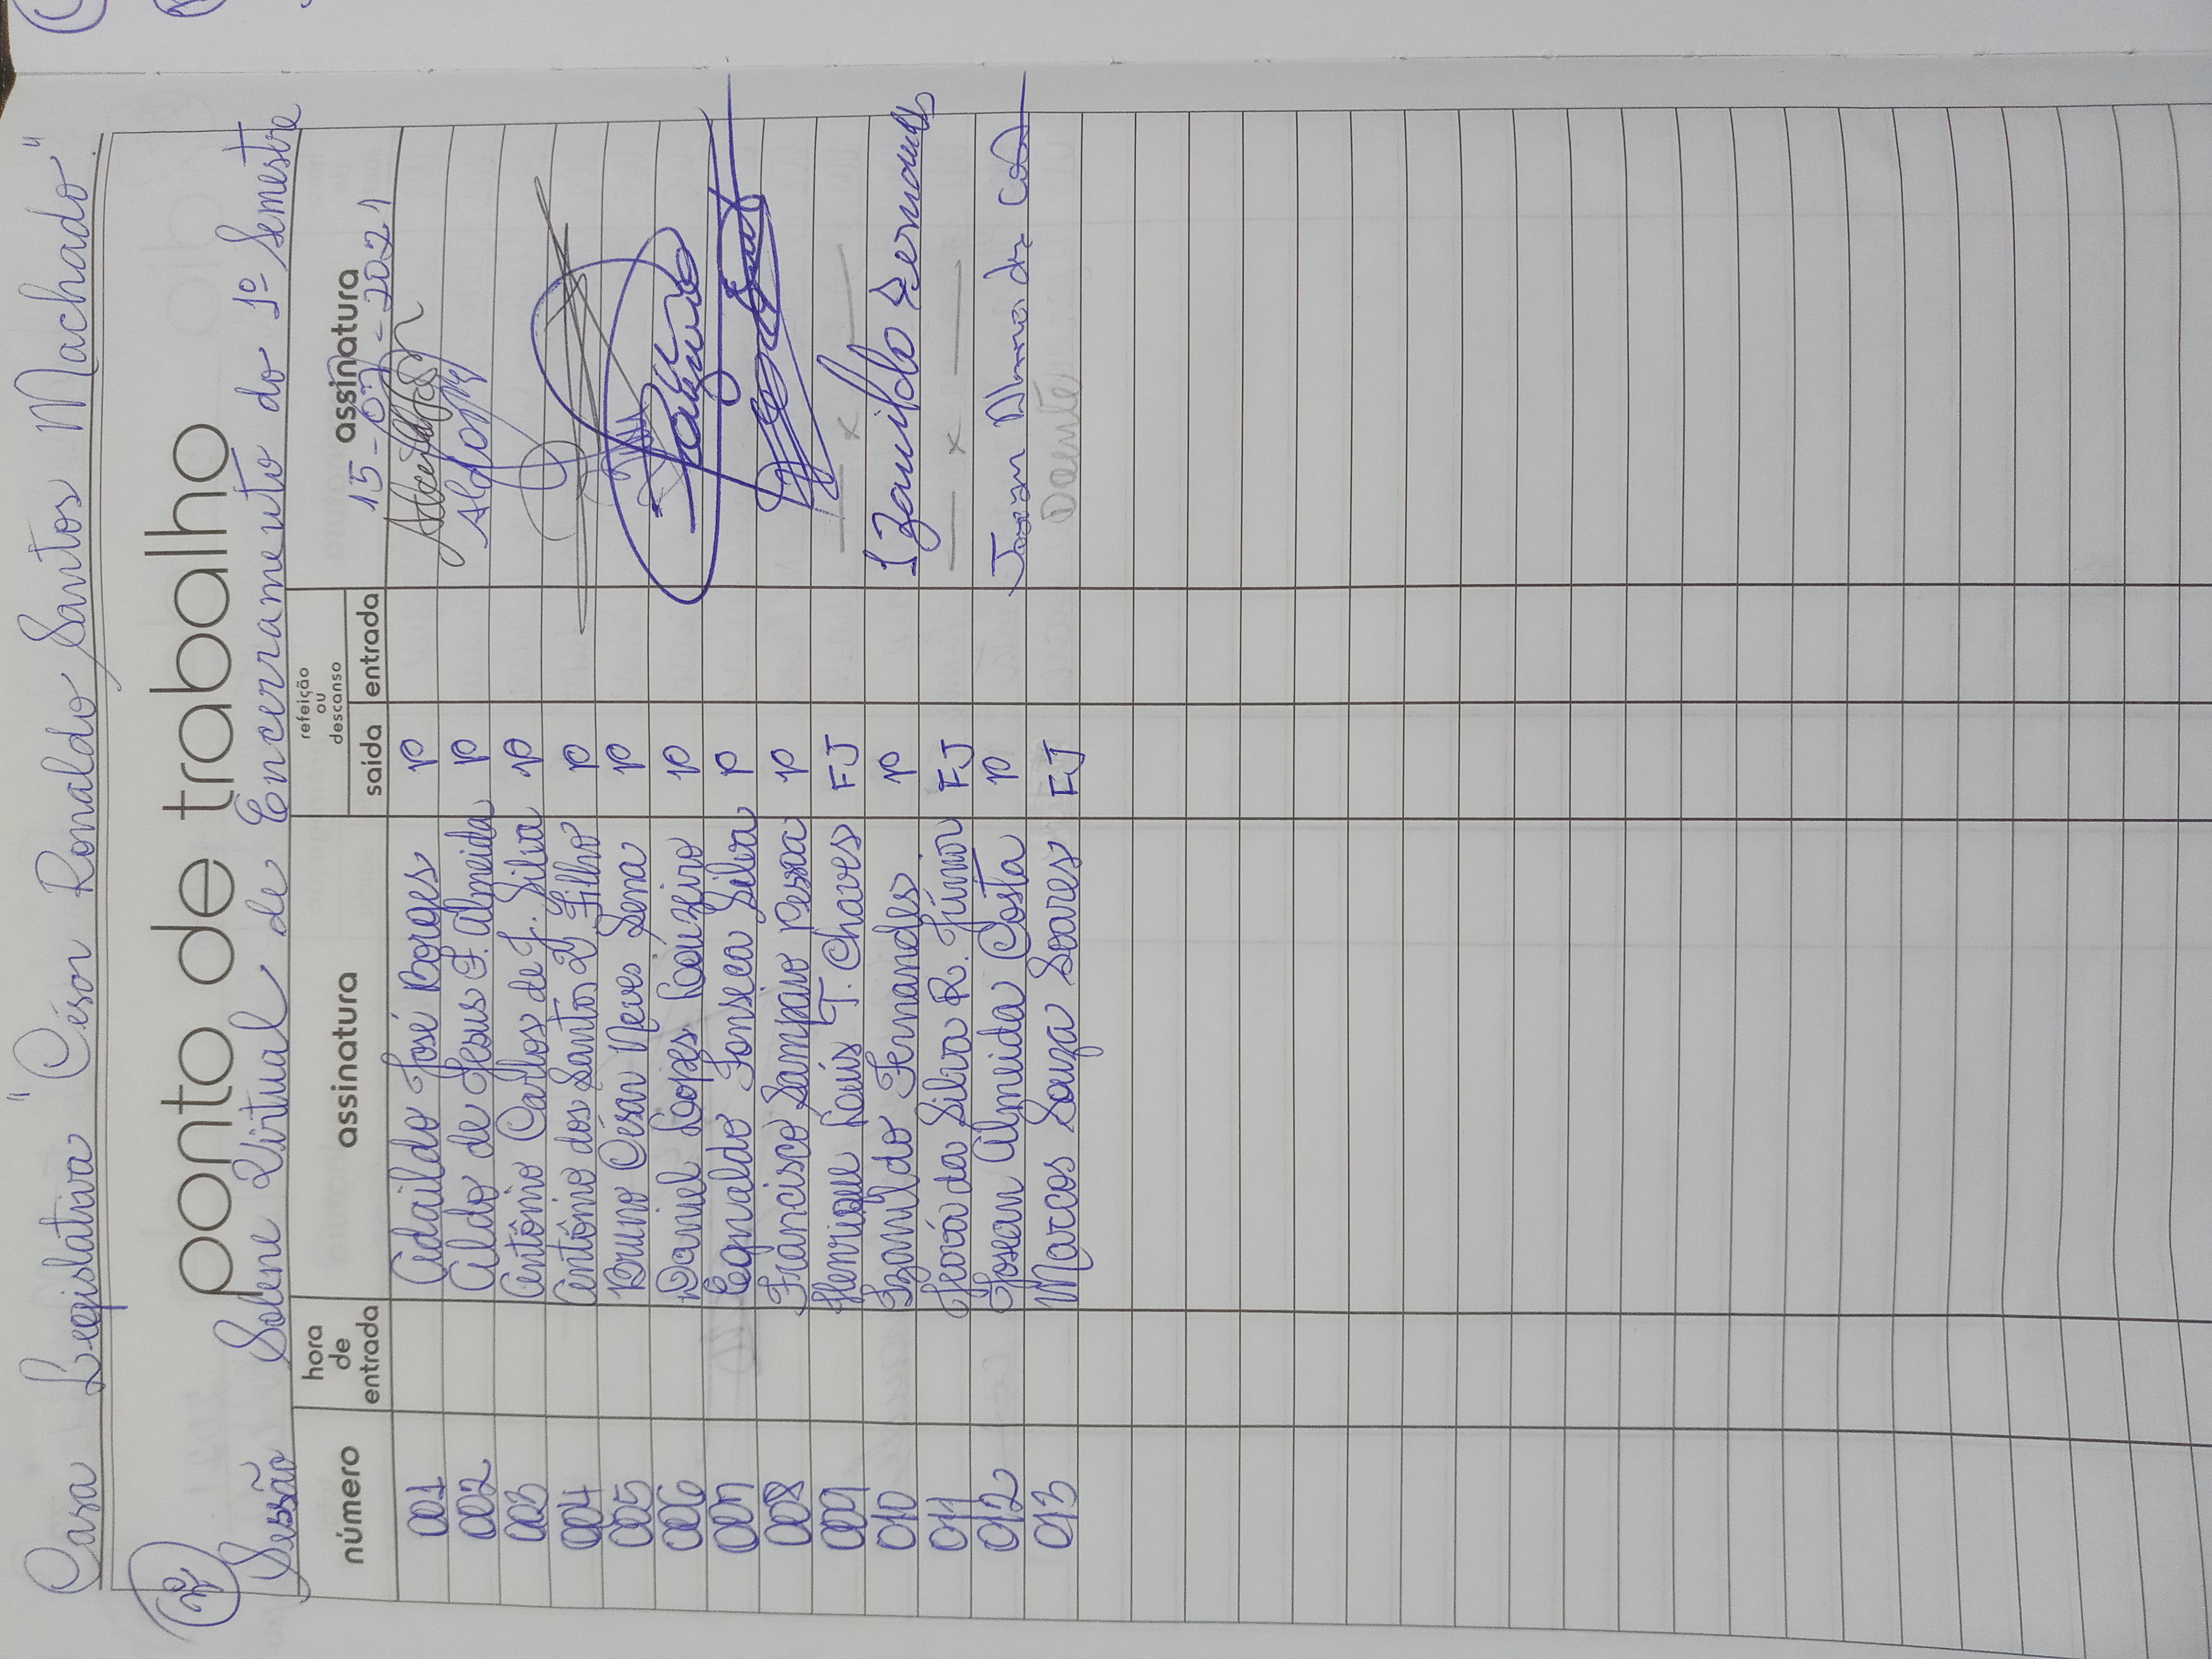 Casa Legislativa "César Ronaldo Santos Machado"
ponto de trabalho
Sessão Solene Virtual de Encerramento do 1º Semestre
número hora de entrada assinatura refeição ou descanso saída entrada assinatura
15-07-2021
001 Adaildo José Borges P
002 Aldo de Jesus F. Almeida P Aldo
003 Antônio Carlos de J. Silva P
004 Antônio dos Santos Filho P
005 Bruno César Neves Sena P
006 Daniel Lopes Louzeiro P
007 Egnaldo Fonseca Silva P
008 Francisco Sampaio Pessoa P
009 Henrique Louis T. Chaves FJ — x —
010 Izanildo Fernandes P Izanildo Fernandes
011 da Silva R. Júnior FJ — x —
012 Josean Almeida Costa P Josean Almeida
013 Marcos Souza Soares FJ Doente